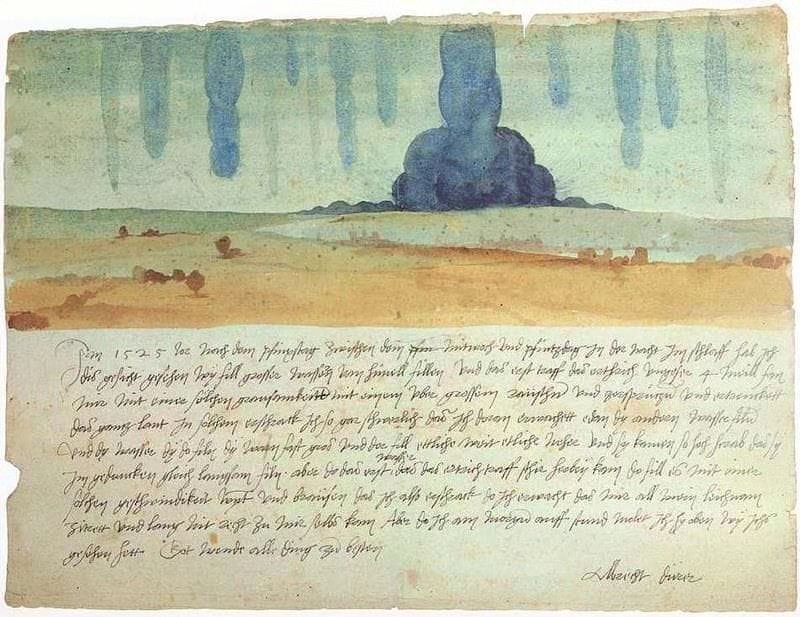 Im 1525 Jor nach dem pfinxtag zwischen dem mitwoch und pfintzdag in der nacht im schlaff hab ich
dis gesicht gesehen wy fill grosser wassern vom himell fillen Und das erst traff das erthrich ungefer 4 meill fan
mir mit einer solchen grausamkeitt mit einem uber grossem raüschn und zersprützn und ertrenckett
das gancz lant In solchem erschrack ich so gar schwerlich das ich doran erwachett edan dy andern wasser filn
Und dy wasser dy do filn dy warn fast gros und der fill ettliche weit etliche neher und sy kamen so hoch herab das sy
im gedancken gleich langsam filn. aber do das erst wasser das das ertrich traff schir herbey kam do fill es mit einer
solchen geschwindikeit wynt und braüsen das ich also erschrack do ich erwacht das mir all mein leichnam
zitrett und lang nit recht zu mir selbs kam Aber do ich am morgen auff stund molet ich hy oben wy ichs
gesehen hett. Got wende alle ding zu besten
Albrecht dürer